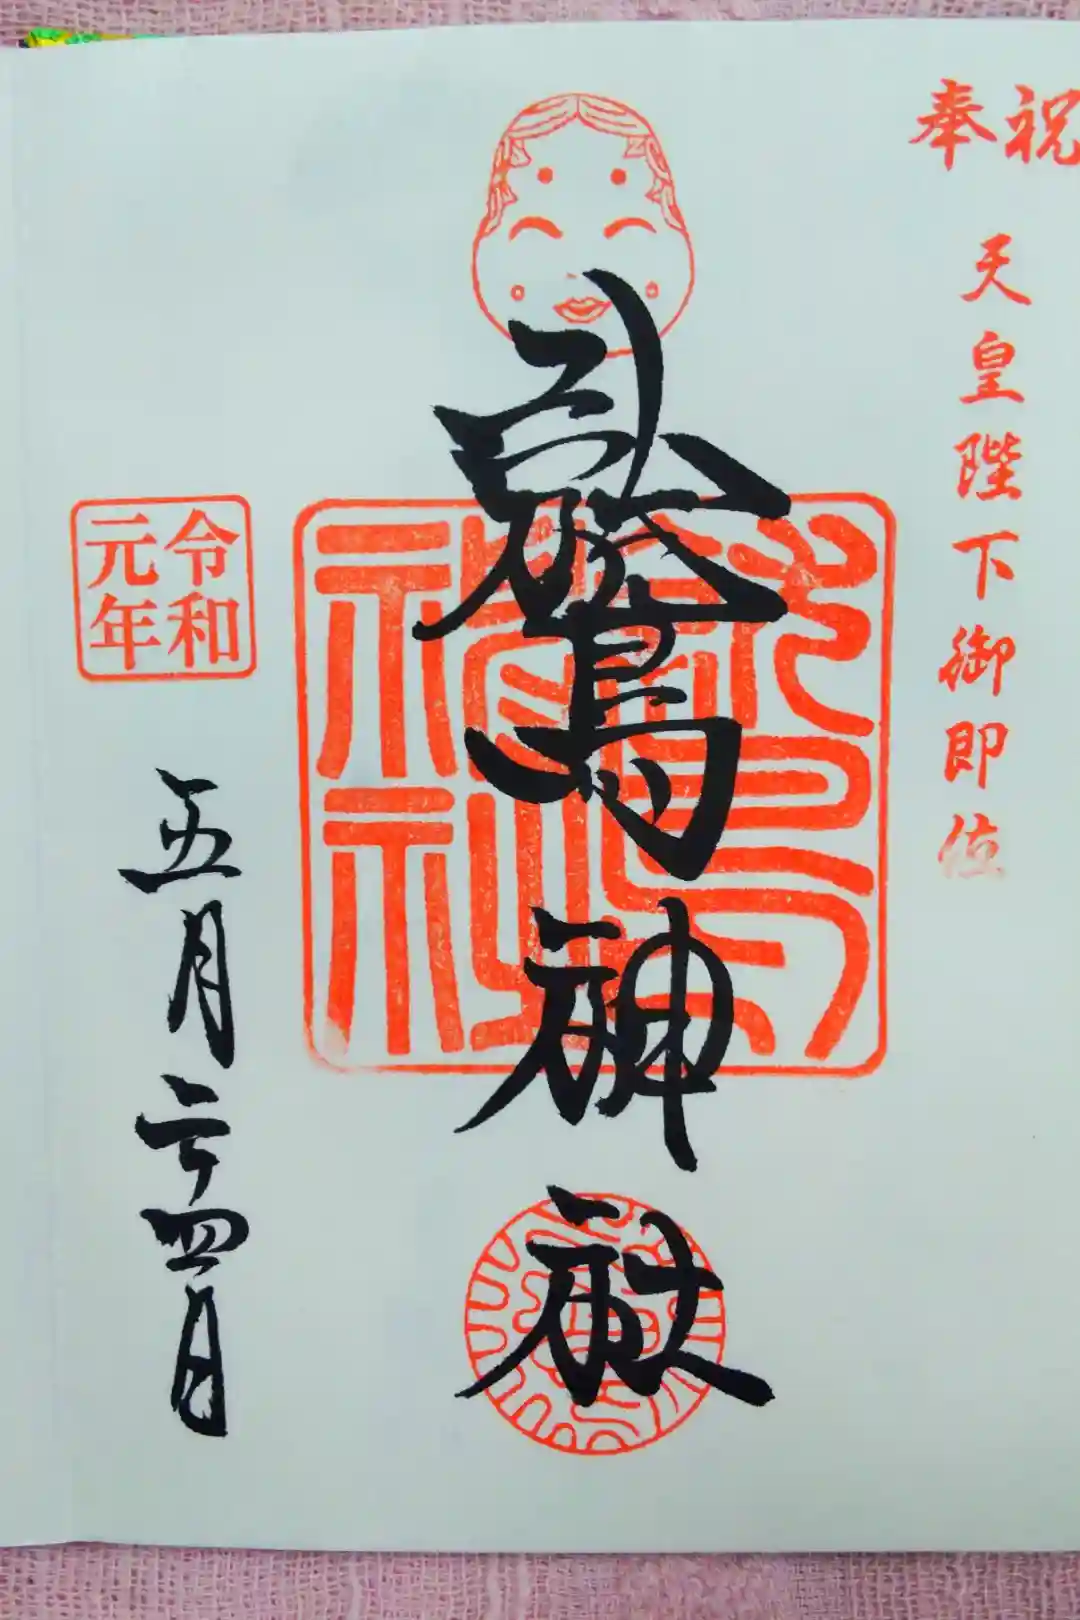 奉祝
天皇陛下御即位
鷲神社
令和
元年
五月二十四日